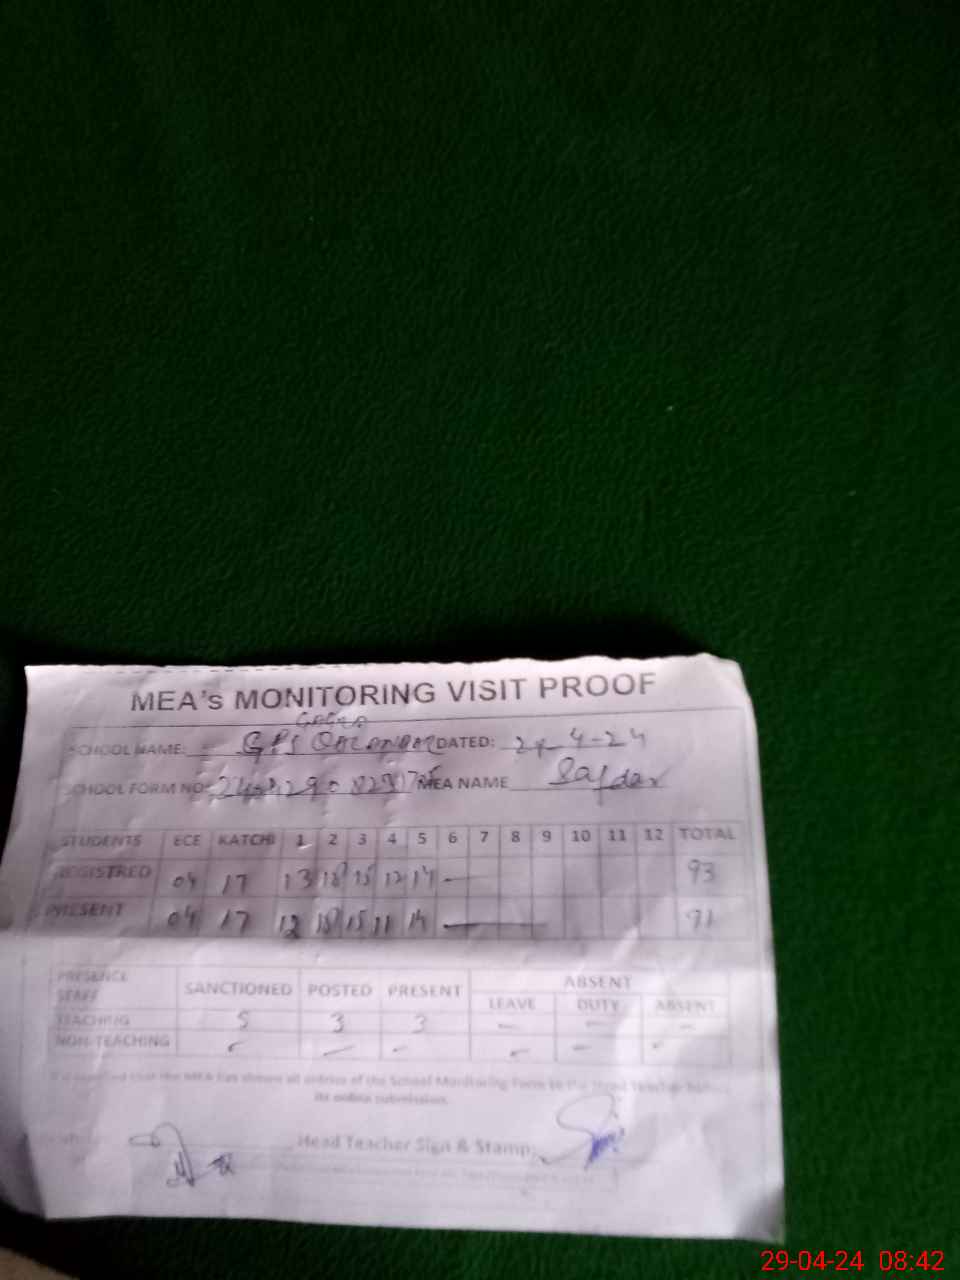 MEA's MONITORING VISIT PROOF
SCHOOL NAME: GPS DATED: 4-24
SCHOOL FORM NO: MEA NAME Safdar
STUDENTS ECE KATCHI 1 2 3 4 5 6 7 8 9 10 11 12 TOTAL
REGISTRED 04 17 13 18 15 12 14 — 93
PRESENT 04 17 12 18 15 11 14 — 91
PRESENCE STAFF SANCTIONED POSTED PRESENT ABSENT
LEAVE DUTY ABSENT
TEACHING 5 3 3 — — —
NON-TEACHING — — — — — —
It is certified that the MEA has shown all entries of the School Monitoring Form to the Head Teacher before
its online submission.
Head Teacher Sign & Stamp:
29-04-24 08:42